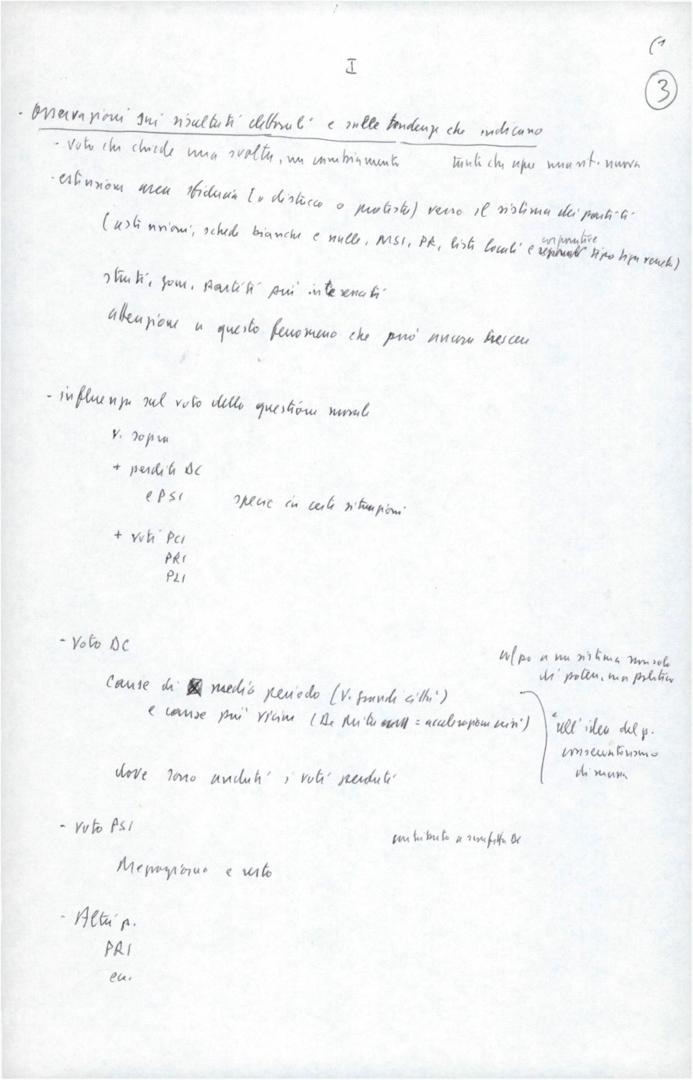 (1
I
3
- Osservazioni sui risultati elettorali e sulle tendenze che indicano
- voto che chiede una svolta, un cambiamento
- estensione area sfiducia (o distacco o protesta) verso il sistema dei partiti
(astensioni, schede bianche e nulle, MSI, PR, liste locali e corporative tipo liga veneta)
partiti più interessati
attenzione a questo fenomeno che può ancora crescere
- influenza sul voto della questione morale
v. sopra
+ perdite DC
e PSI specie in certe situazioni
+ voti PCI
PRI
PLI
- Voto DC
colpo a un sistema non solo
di potere, ma politico
Cause di medio periodo (v. grandi città)
e cause più vicine (De Mita = accelerazione crisi)
all'idea del p.
conservatorismo
di massa
dove sono andati i voti perduti
- Voto PSI
contributo a sconfitta DC
Mezzogiorno e resto
- Altri p.
PRI